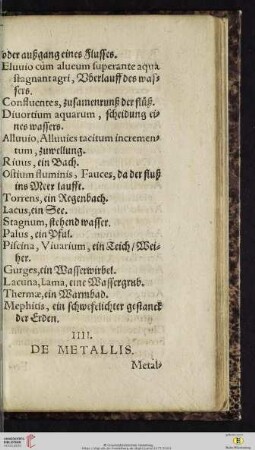 oder außgang eines Flusses.
Eluuio cùm alueum superante aqua
stagnant agri, Vberlauff des was-
sers.
Confluentes, zusamenrunß der flüß.
Diuortium aquarum, scheidung ei-
nes wassers.
Alluuio, Alluuies tacitum incremen-
tum, zuwellung.
Riuus, ein Bach.
Ostium fluminis, Fauces, da der fluß
ins Meer laufft.
Torrens, ein Regenbach.
Lacus, ein See.
Stagnum, stehend wasser.
Palus, ein Pful.
Piscina, Viuarium, ein Teich/ Wei-
her.
Gurges, ein Wasserwirbel.
Lacuna, Lama, eine Wassergrub.
Thermæ, ein Warmbad.
Mephitis, ein schwefelichter gestanck
der Erden.
IIII.
DE METALLIS.
Metal-